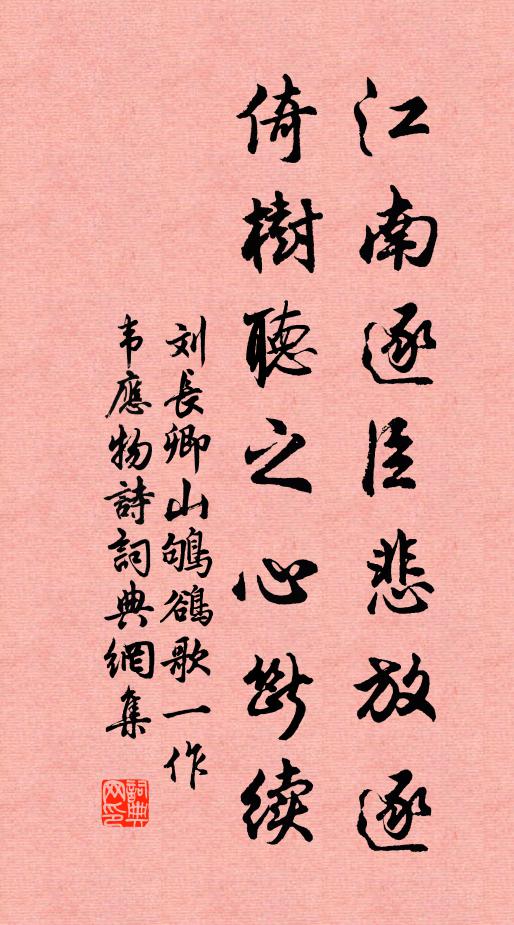 江南逐臣悲放逐
倚樹聽之心斷续
刘長卿山鴝鵒歌一作
韦應物詩詞典網集
詞典网印